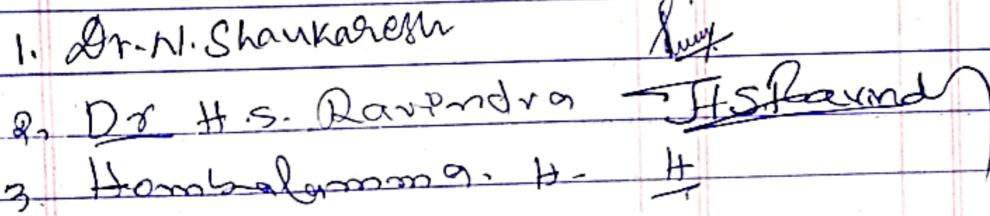 1. Dr. N. Shankaresh
2, Dr H.S. Ravindra HSRavind
3. Hombalamma. H- H